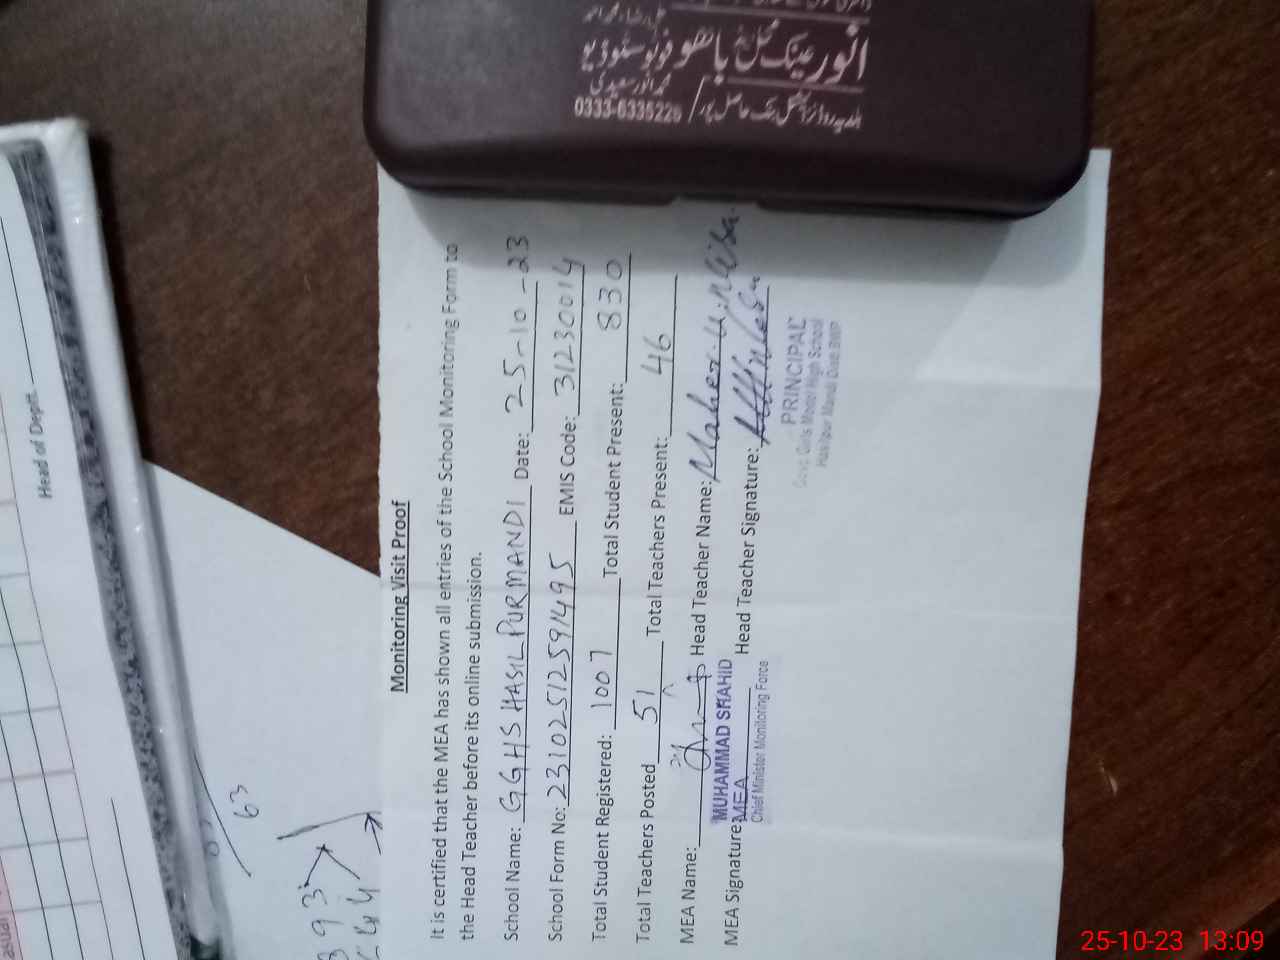 Monitoring Visit Proof
It is certified that the MEA has shown all entries of the School Monitoring Form to
the Head Teacher before its online submission.
School Name: GGHS HASILPUR MANDI Date: 25-10-23
School Form No: 23102512591495 EMIS Code: 31230014
Total Student Registered: 1007 Total Student Present: 830
Total Teachers Posted 51 Total Teachers Present: 46
MEA Name: Head Teacher Name: Maher-u-Nisa.
MUHAMMAD SHAHID
MEA Signature: MEA Head Teacher Signature:
Chief Minister Monitoring Force
PRINCIPAL
Govt: Girls Model High School
Hasilpur Mandi Distt: BWP
Head of Deptt.
63
393
انور عینک محل باھو فوٹو سٹوڈیو
محمد انور سعیدی
0333-6335226
25-10-23 13:09